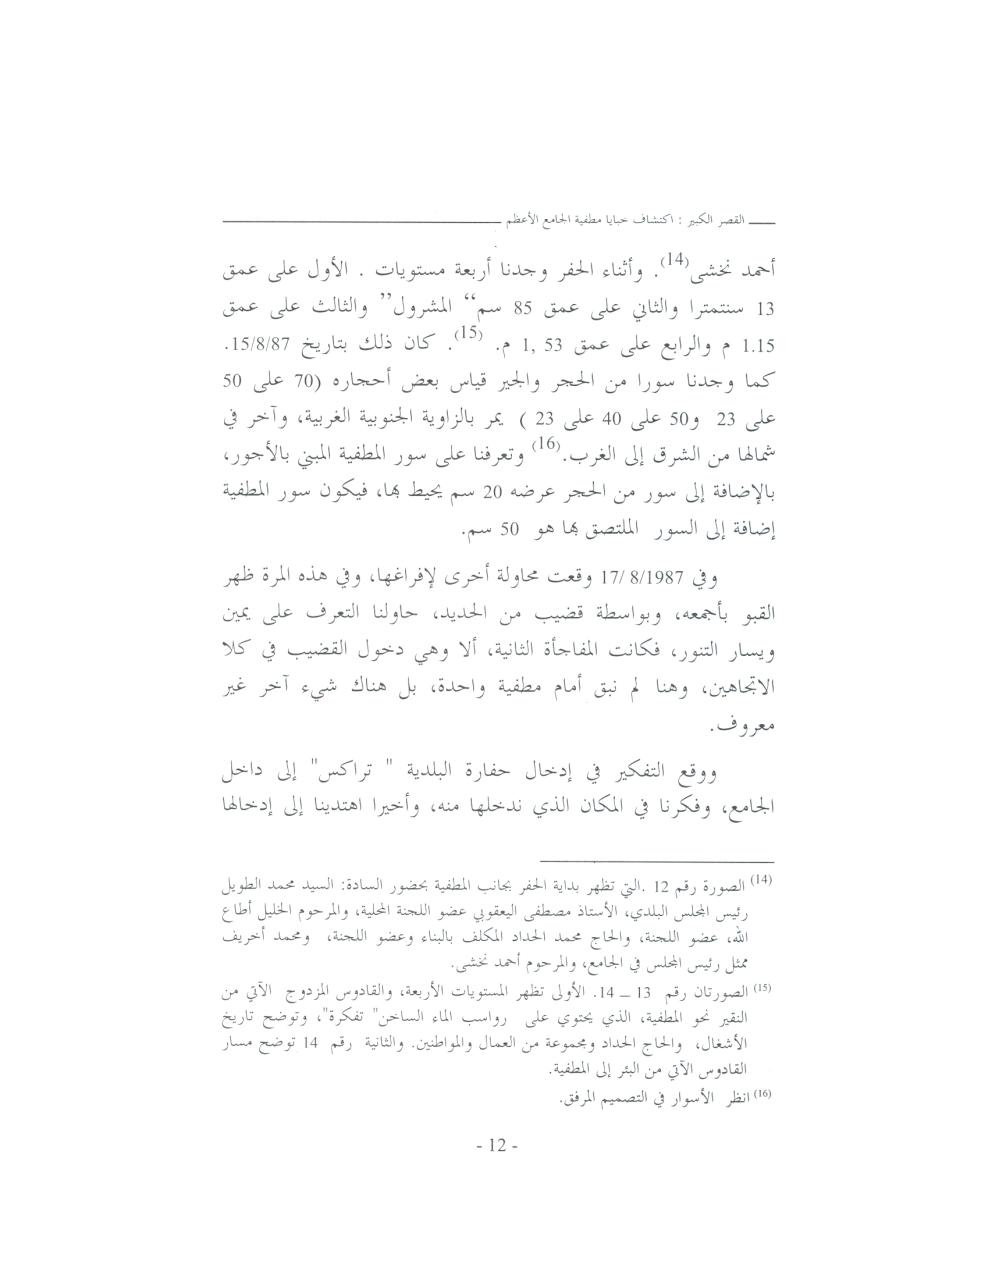 القصر الكبير : اكتشاف خبايا مطفية الجامع الأعظم
أحمد نخشى(14). وأثناء الحفر وجدنا أربعة مستويات . الأول على عمق
13 سنتمترا والثاني على عمق 85 سم“ المشرول” والثالث على عمق
1.15 م والرابع على عمق 53 ,1 م. (15). كان ذلك بتاريخ 15/8/87.
كما وجدنا سورا من الحجر والجير قياس بعض أحجاره (70 على 50
على 23 و50 على 40 على 23 ) يمر بالزاوية الجنوبية الغربية، وآخر في
شمالها من الشرق إلى الغرب.(16) وتعرفنا على سور المطفية المبني بالأجور،
بالإضافة إلى سور من الحجر عرضه 20 سم يحيط بها، فيكون سور المطفية
إضافة إلى السور الملتصق بها هو 50 سم.
وفي 17/ 8/1987 وقعت محاولة أخرى لإفراغها، وفي هذه المرة ظهر
القبو بأجمعه، وبواسطة قضيب من الحديد، حاولنا التعرف على يمين
ويسار التنور، فكانت المفاجأة الثانية، ألا وهي دخول القضيب في كلا
الاتجاهين، وهنا لم نبق أمام مطفية واحدة، بل هناك شيء آخر غير
معروف.
ووقع التفكير في إدخال حفارة البلدية " تراكس" إلى داخل
الجامع، وفكرنا في المكان الذي ندخلها منه، وأخيرا اهتدينا إلى إدخالها
(14) الصورة رقم 12 .التي تظهر بداية الحفر بجانب المطفية بحضور السادة: السيد محمد الطويل
رئيس المجلس البلدي، الأستاذ مصطفى اليعقوبي عضو اللجنة المحلية، والمرحوم الخليل أطاع
الله، عضو اللجنة، والحاج محمد الحداد المكلف بالبناء وعضو اللجنة، ومحمد أخريف
ممثل رئيس المجلس في الجامع، والمرحوم أحمد نخشى.
(15) الصورتان رقم 13 – 14. الأولى تظهر المستويات الأربعة، والقادوس المزدوج الآتي من
النقير نحو المطفية، الذي يحتوي على رواسب الماء الساخن" تفكرة"، وتوضح تاريخ
الأشغال، والحاج الحداد ومجموعة من العمال والمواطنين. والثانية رقم 14 توضح مسار
القادوس الآتي من البئر إلى المطفية.
(16) انظر الأسوار في التصميم المرفق.
- 12 -